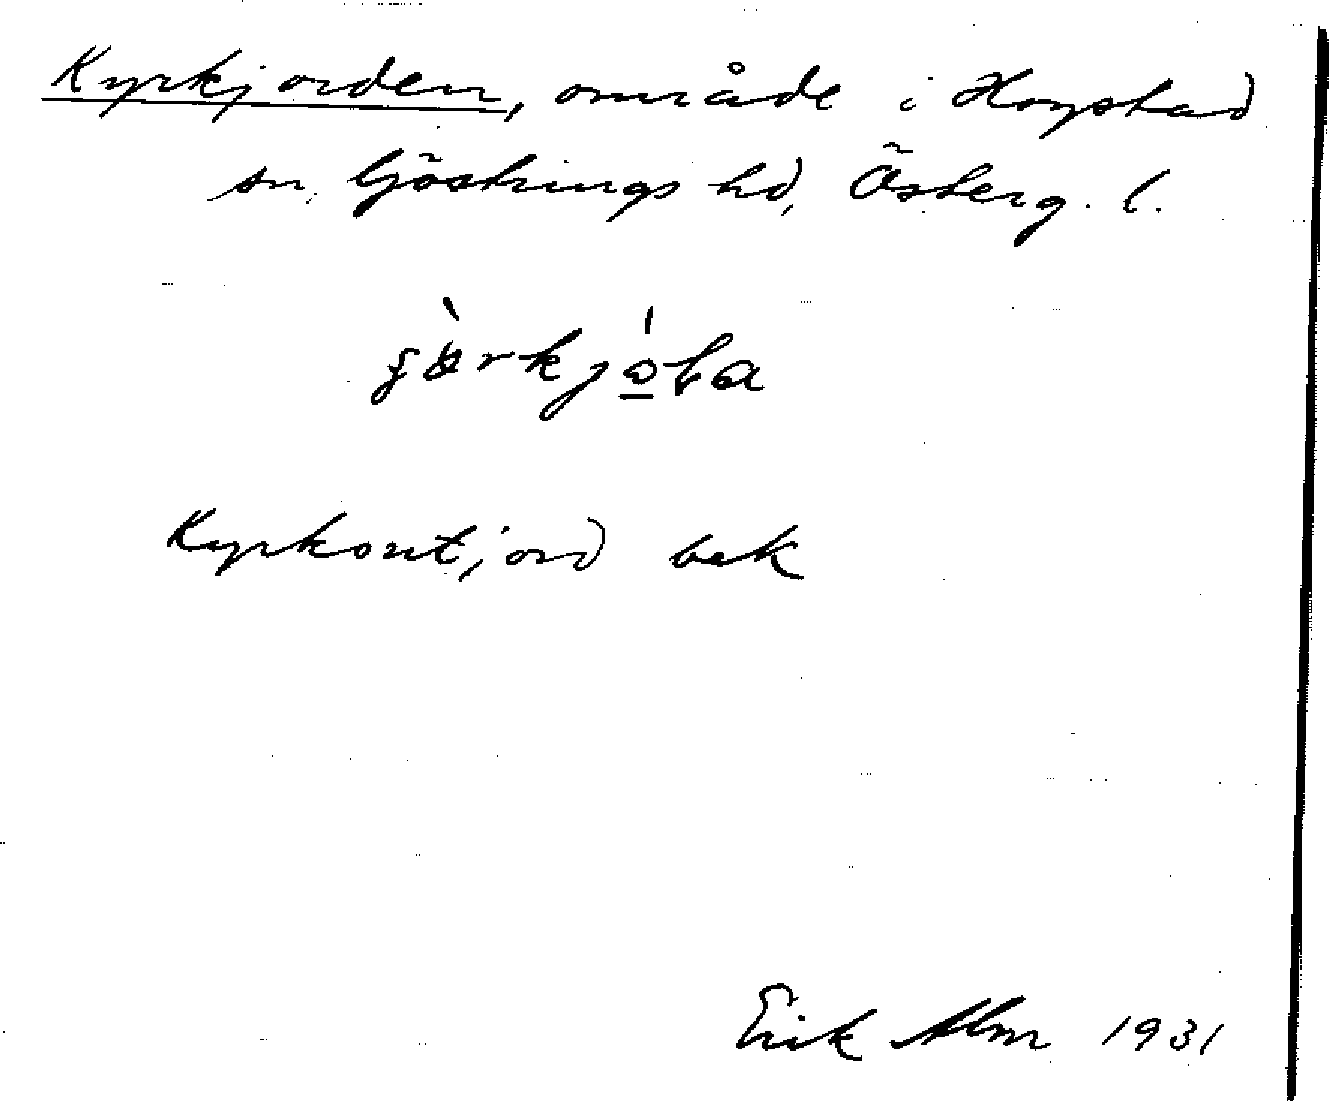 Kyrkjorden, område i Hogstad
sn, Göstrings hd, Österg. l.
Kyrkont; jord bek
Erik Alm 1931